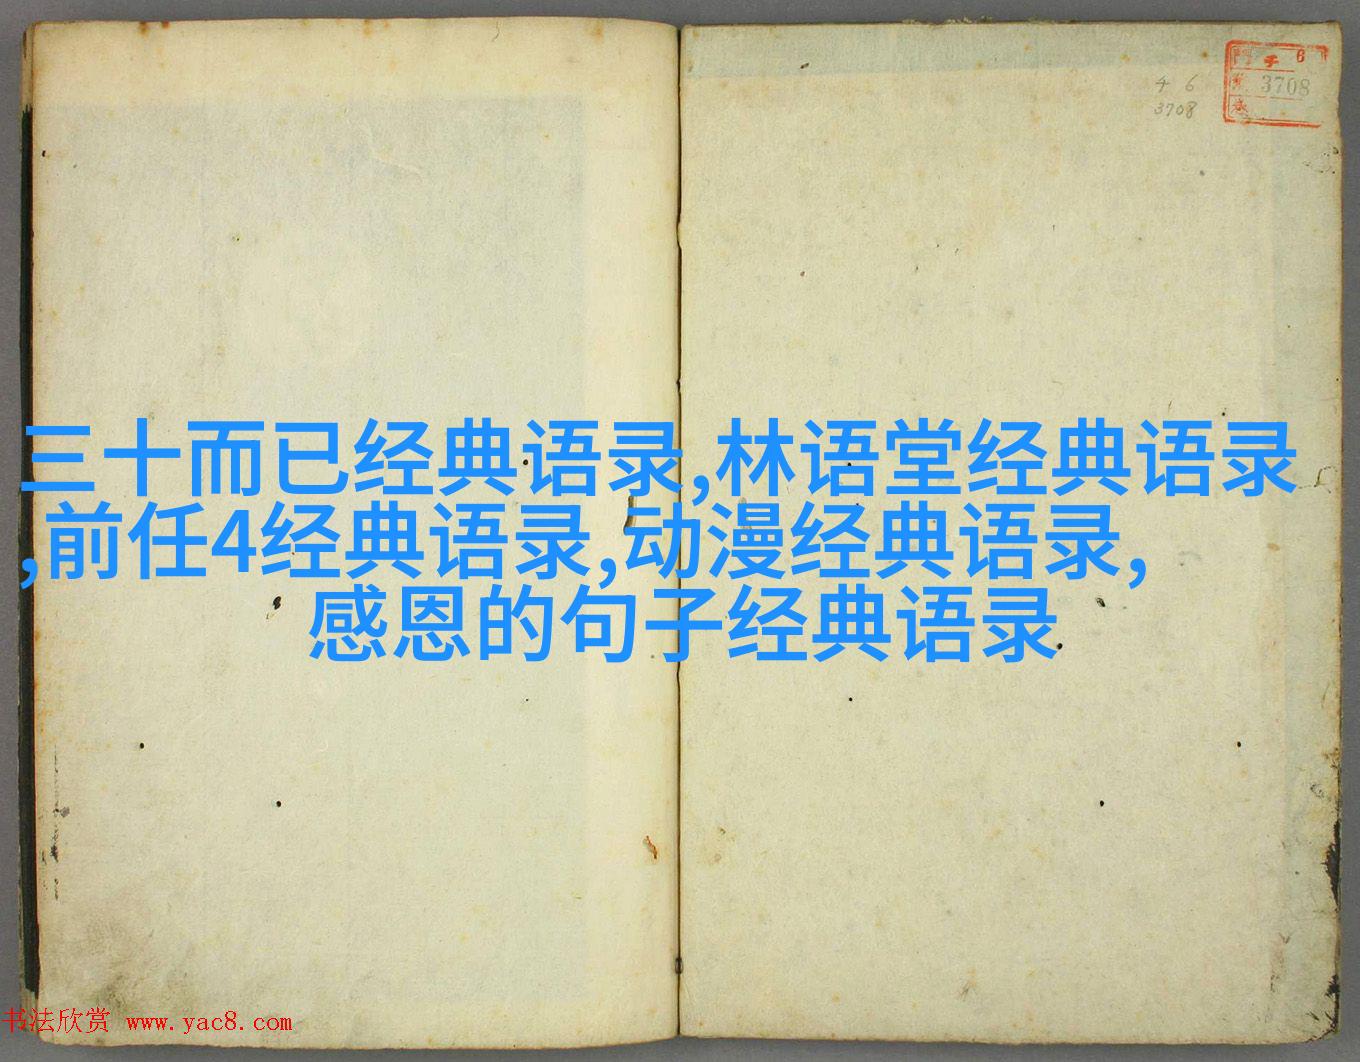 4 6
3708
6
3708
三十而已经典语录,林语堂经典语录
,前任4经典语录,动漫经典语录,
感恩的句子经典语录
书法欣赏 www.yac8.com